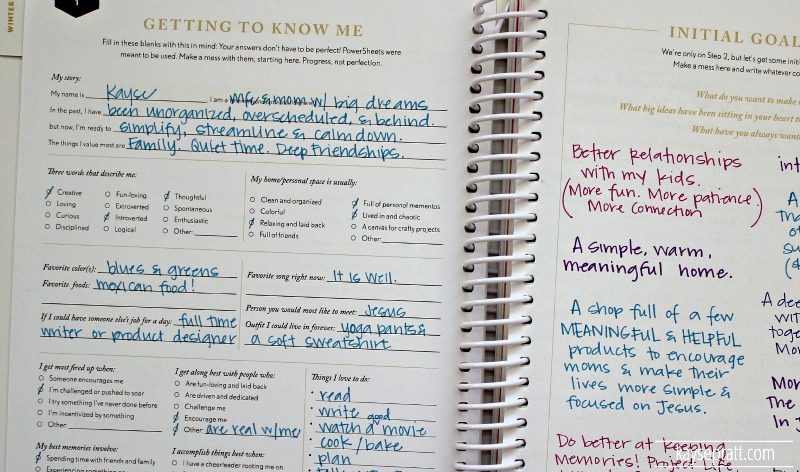 WINTER
1
GETTING TO KNOW ME
Fill in these blanks with this in mind: Your answers don't have to be perfect! PowerSheets were
meant to be used. Make a mess with them, starting here. Progress, not perfection.
My story:
My name is Kayse I am a wife & mom w/ big dreams
In the past, I have been unorganized, overscheduled, & behind.
but now, I'm ready to simplify, streamline & calm down.
The things I value most are Family. Quiet time. Deep friendships.
Three words that describe me:
Creative
Loving
Curious
Disciplined
Fun-loving
Extroverted
Introverted
Logical
Thoughtful
Spontaneous
Enthusiastic
Other:
My home/personal space is usually:
Clean and organized
Colorful
Relaxing and laid back
Full of friends
Full of personal mementos
Lived in and chaotic
A canvas for crafty projects
Other:
Favorite color(s): blues & greens
Favorite foods: mexican food!
If I could have someone else's job for a day: full time
writer or product designer
Favorite song right now: It is Well.
Person you would most like to meet: Jesus
Outfit I could live in forever: yoga pants &
a soft sweatshirt
I get most fired up when:
Someone encourages me
I'm challenged or pushed to soar
I try something I've never done before
I'm incentivized by something
Other:
My best memories involve:
Spending time with friends and family
Experiencing
I get along best with people who:
Are fun-loving and laid back
Are driven and dedicated
Challenge me
Encourage me
Other: are real w/me
I accomplish things best when:
I have a cheerleader rooting me on
Things I love to do:
read
write
watch a good movie
cook/bake
plan
INITIAL GOAL
We're only on Step 2, but let's get some initi
Make a mess here and write whatever co
What do you want to make
What big ideas have been sitting in your heart
What have you always want
Better Relationships
with my kids.
(More fun. More patience.
More Connection)
A simple, warm,
meaningful home.
A shop full of a few
MEANINGFUL & HELPFUL
products to encourage
moms & make their
lives more simple &
focused on Jesus.
Do better at keeping
Memories! Project Life
int
A dee
wit
toge
Mor
Mor
The
In J
kaysepratt.com